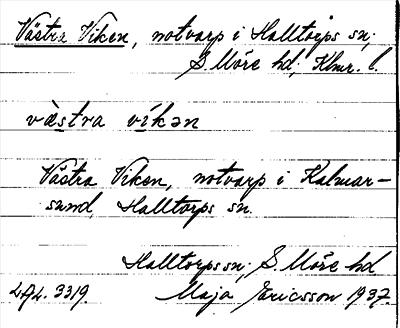 Västra Viken, notvarp i Halltorps sn;
S. Möre hd; Klmr. l.
vȧ̀stra víkən
Västra Viken, notvarp i Kalmar-
sund, Halltorps sn.
Halltorps sn; S. Möre hd
LAL. 3319. Maja Ericsson 1937.